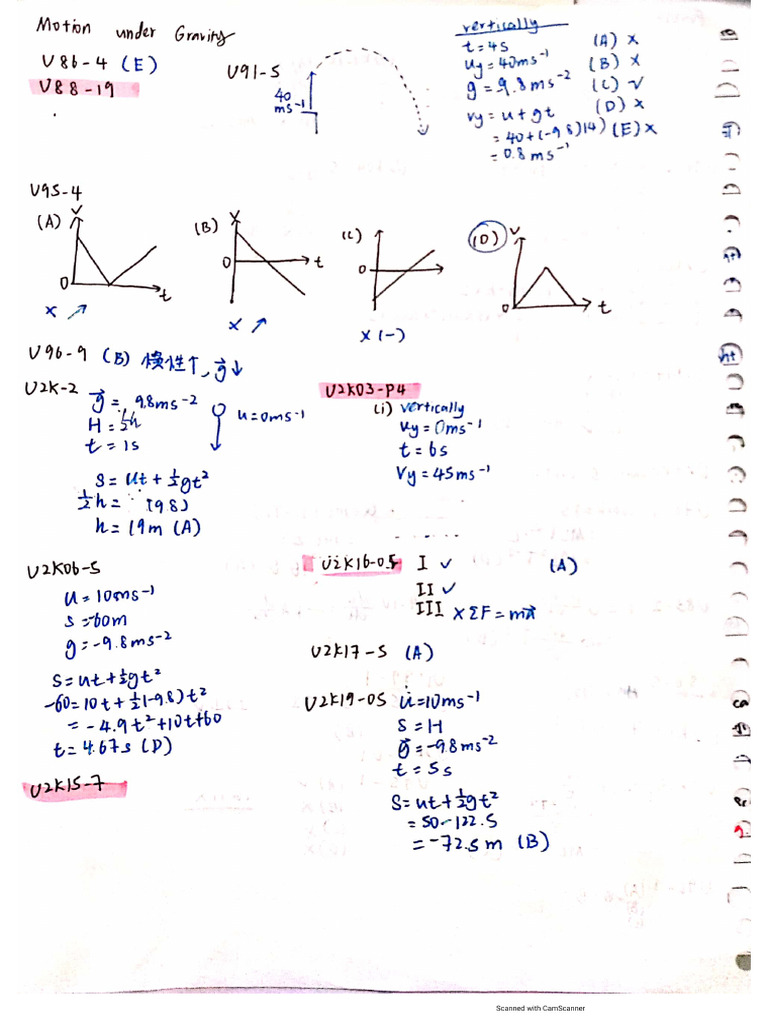 Motion under Gravity
U86-4 (E)
U88-19
U91-5
40
ms⁻¹
vertically
t=4s
uy=40ms⁻¹
g=9.8ms⁻²
vy=u+gt
=40+(-9.8)(4)
=0.8ms⁻¹
(A) ×
(B) ×
(C) ✓
(D) ×
(E) ×
U95-4
(A) v
0 t
× ↗
(B) v
0 t
× ↗
(C)
0
× (-)
(D) v
0 t
U96-9 (B) 慣性↑, g⃗↓
U2K-2
g⃗=9.8ms⁻²
H=½h
t=1s
u=0ms⁻¹
s=ut+½gt²
½h= ½(9.8)
h=19m (A)
U2K03-P4
(i) vertically
uy=0ms⁻¹
t=6s
Vy=45ms⁻¹
U2K06-5
u=10ms⁻¹
s=-60m
g=-9.8ms⁻²
s=ut+½gt²
-60=10t+½(-9.8)t²
=-4.9t²+10t+60
t=4.67s (D)
U2K15-7
U2K16-05 I ✓ (A)
II ✓
III × ΣF=ma⃗
U2K17-5 (A)
U2K19-05 u=10ms⁻¹
s=H
g⃗=-9.8ms⁻²
t=5s
s=ut+½gt²
=50-122.5
=-72.5m (B)
Scanned with CamScanner